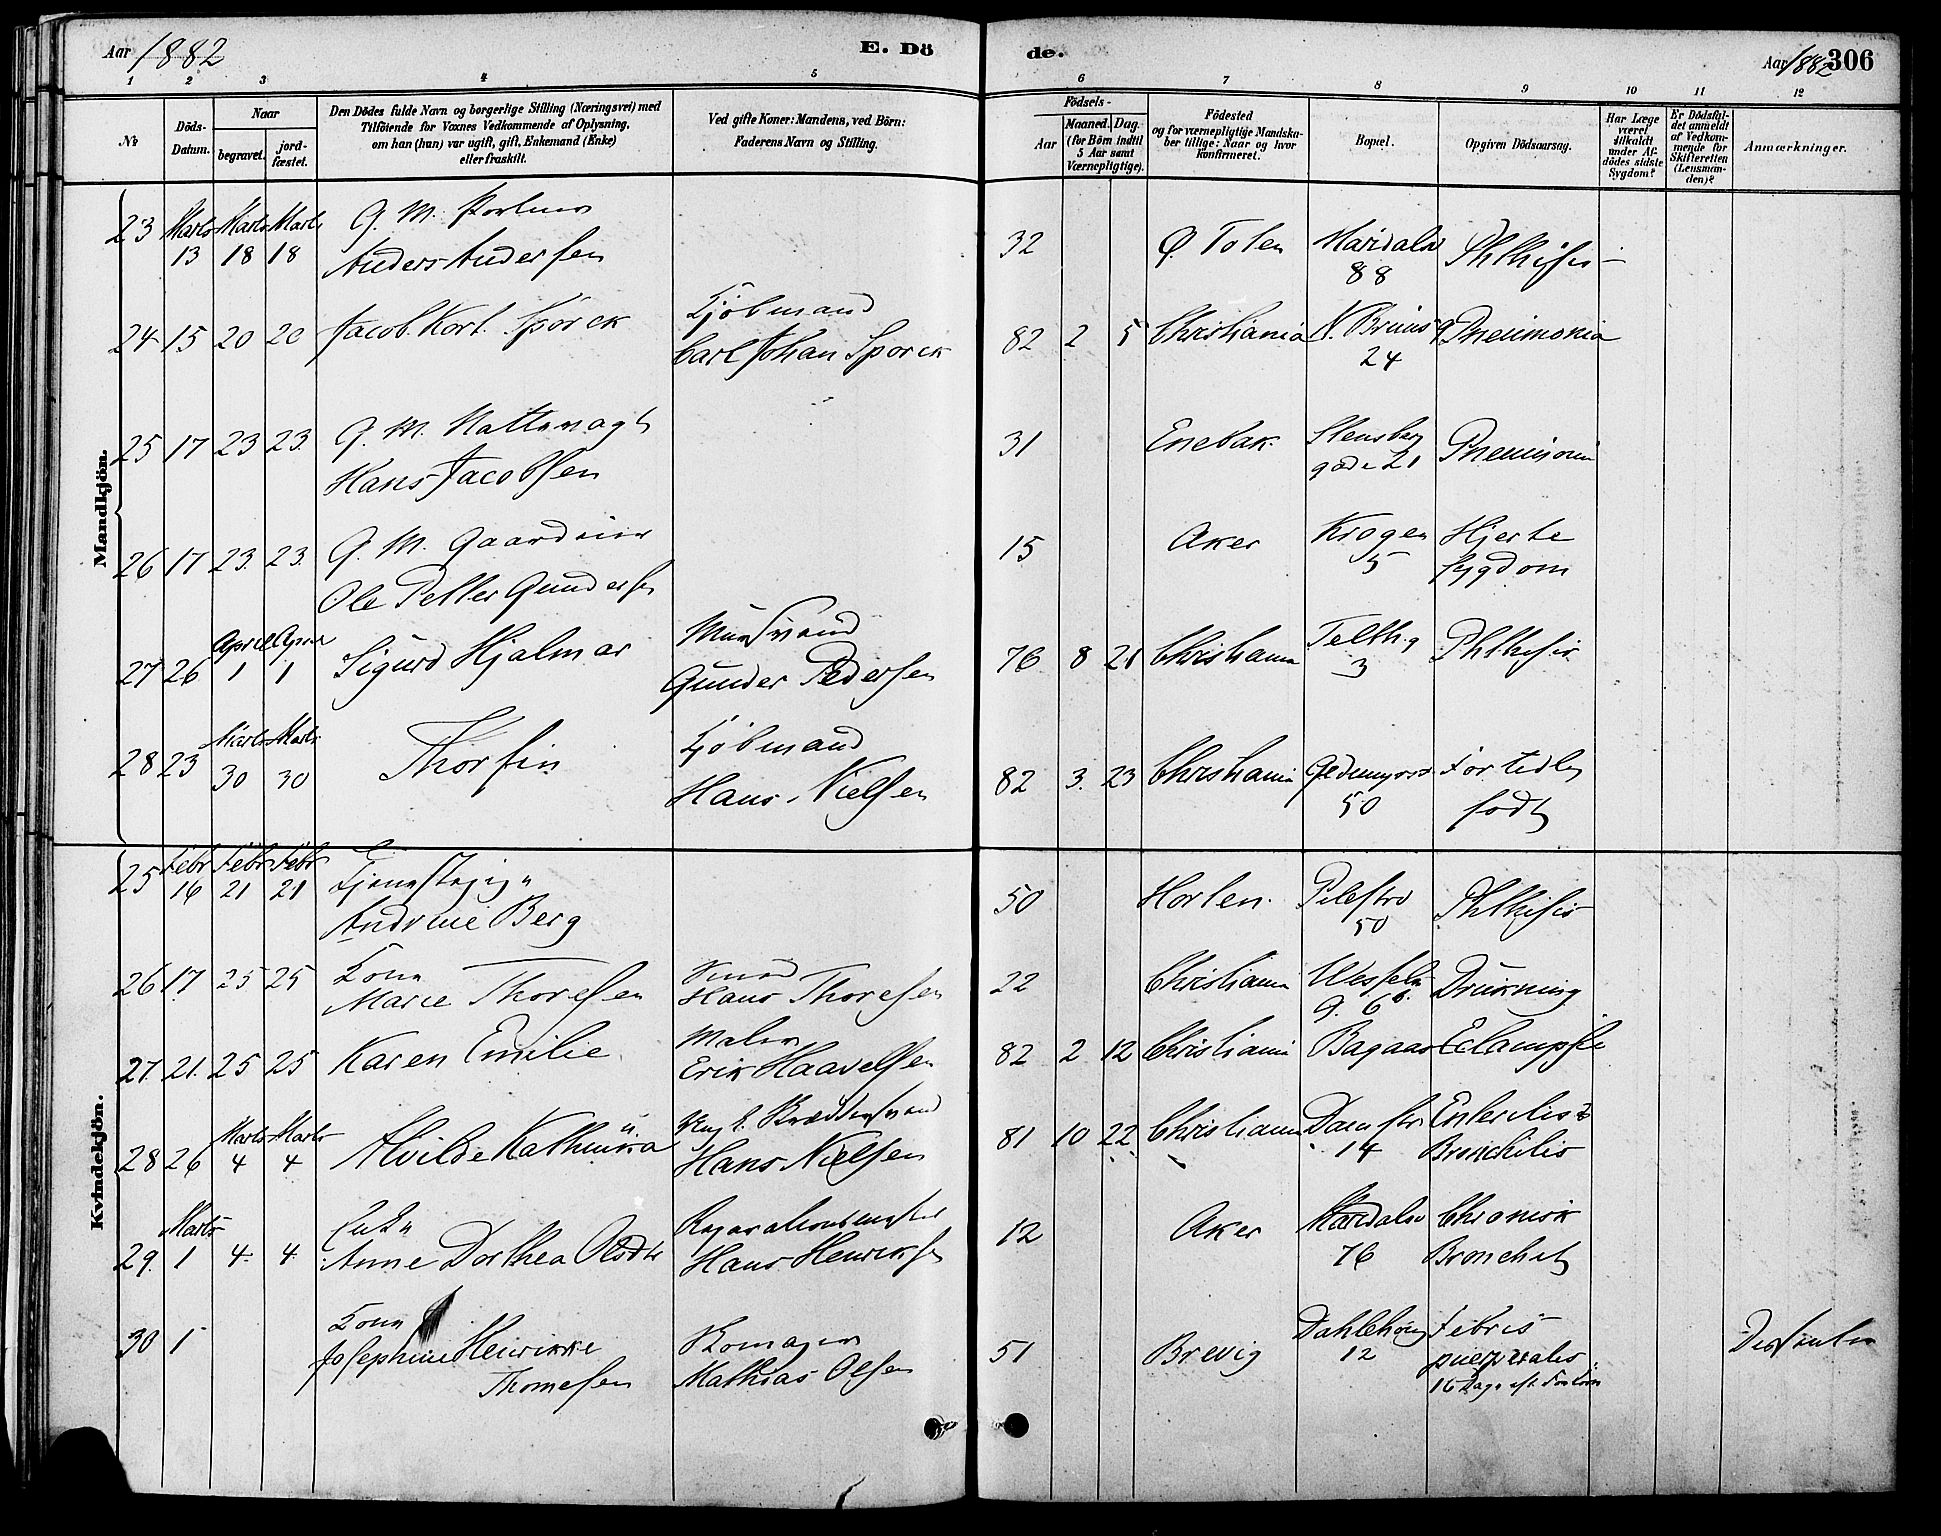 Aar 1882
E. Dö
de.
Aar 1882 306
1 2 3 4 5 6 7 8 9 10 11 12
No
Döds-Datum.
Naar
begravet.
jord-fæstet.
Den Dödes fulde Navn og borgerlige Stilling (Næringsvei) med
Tilföiende for Voxnes Vedkommende af Oplysning,
om han (hun) var ugift, gift, Enkemand (Enke)
eller fraskilt.
Ved gifte Koner: Mandens, ved Börn:
Faderens Navn og Stilling.
Födsels-
Aar
Maaned. Dag.
(for Börn indtil
5 Aar samt
Værnepligtige).
Födested
og for værnepligtige Mandska-
ber tillige: Naar og hvor
konfirmeret.
Bopæl.
Opgiven Dödsaarsag.
Har Læge
været
tilkaldt
under Af-
dödes sidste
Sygdom?
Er Dödsfal-
det anmeldt
af Vedkom-
mende for
Skifteretten
(Lensman-
den)?
Anmærkninger.
Mandkjön.
23 Marts Marts Marts G. M.
13 18 18 Anders Andersen
32 Ø. Toten Maridalsv Phthisis
88
24 15 20 20 Jacob Karl Spörck Kjöbmand
Carl Johan Sporck
82 2 5 Christiania N. Bruunsg Pneumonia
24
25 17 23 23. G. M. Nattevagt
Hans Jacobsen
31 Enebak. Stensberg Pneumoni
gade 21
26 17 23. 23. G. M. Gaardeier
Ole Petter Gundersen
15 Aker Krogen Hjerte
5 sygdom
27 26 April April Sigurd Hjalmar MurSvend
1 1 Gunder Pedersen
76 8 21 Christiania Telthg Phthisis
3
28 23 Marts Marts Thorfin Kjöbmand
30 30 Hans Nielsen
82 3. 23 Christiania For tidlig
50 födt
Kvindekjön.
25 Febr Febr Febr
16 21 21 Andrine Berg
50 Horten. Pilestr Phthisis
50
26 17. 25 25 Kone
Marie Thoresen Hans Thoresen
22 Christiania Wessels Drukning
g. 6b.
27. 21. 25 25 Karen Emilie Maler
Erik Haavelsen
82 2 12 Christiania Bagaas Eclampsie
28 26 Marts Marts Alvilde Kathinka
4 4 Hans Nielsen
81 10 22 Christiania Damstr. Enteritis &
14 Bronchitis
29. Marts
1 4. 4 Anne Dorthea Olsdtr Hans Henriksen
12 Aker Maridalsv Chronisk
76 Bronchit
30 1 Kone
Josephine Henrikke
Thomesen
Skomager
Mathias Olsen
51 Brevig Febris
12 puerperalis
16 Dage eft.